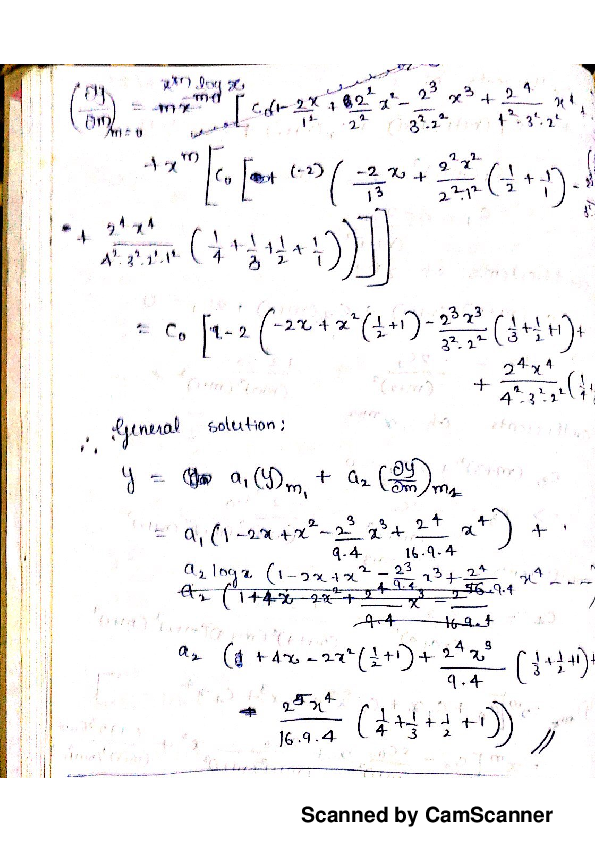 (∂y/∂m)_{m=0} = x^m log x [ C₀(1 - 2x/1² + 2²/2² x² - 2³/3²·2² x³ + 2⁴/4²·3²·2² x⁴
+ x^m [ C₀ [ (-2) ( -2/1³ x + 2²x²/2²·1² (1/2 + 1/1) -
+ 2⁴x⁴/4²·3²·2²·1² (1/4 + 1/3 + 1/2 + 1/1) ) ] ]
= C₀ [ -2 ( -2x + x² (1/2 + 1) - 2³x³/3²·2² (1/3 + 1/2 + 1) +
+ 2⁴x⁴/4²·3²·2² (
∴ General solution:
y = a₁(y)_{m₁} + a₂ (∂y/∂m)_{m₂}
= a₁ (1 - 2x + x² - 2³/9.4 x³ + 2⁴/16.9.4 x⁴) +
a₂ log x (1 - 2x + x² - 2³/9.4 x³ + 2⁴/16.9.4 x⁴ ---)
a₂ (1 + 4x - 2x² + 2⁴/9.4 x³ - 2/16.9.4
a₂ ( + 4x - 2x² (1/2 + 1) + 2⁴x³/9.4 (1/3 + 1/2 + 1) +
2⁵x⁴/16.9.4 (1/4 + 1/3 + 1/2 + 1) ) //
Scanned by CamScanner